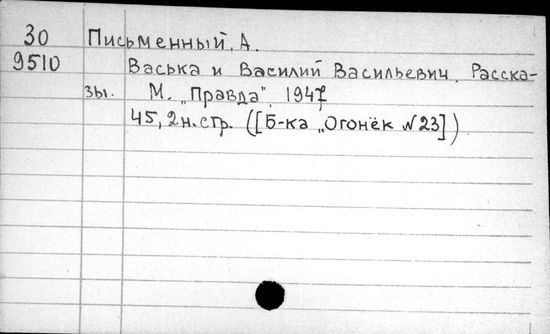 30 Письменный, А.
9510 Васька и Василий Васильевич. Расска-
зы. М. „Правда“, 1947
45, 2 н. стр. ([Б-ка „Огонёк №23])